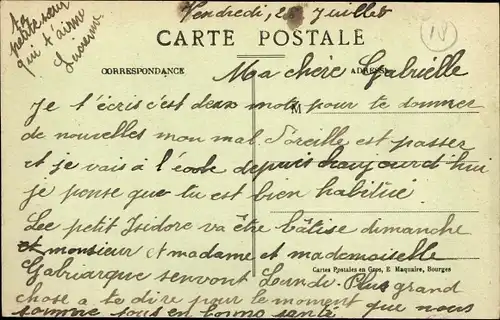 Vendredi, 28 Juillet
Ta
petite sœur
qui t'aime
CARTE POSTALE
CORRESPONDANCE
Ma chère Gabrielle
M
Je t'écris c'est deux mots pour te donner
de nouvelles mon mal d'oreille est passer
et je vais à l'école depuis aujourd'hui
je pense que tu est bien habitué.
Lee petit Isidore va être bâtise dimanche
et monsieur et madame et mademoiselle
Cartes Postales en Gros, E. Maquaire, Bourges
servont Lundi. Plus grand
chose a te dire pour le moment que nous
somme tous en bonne santé